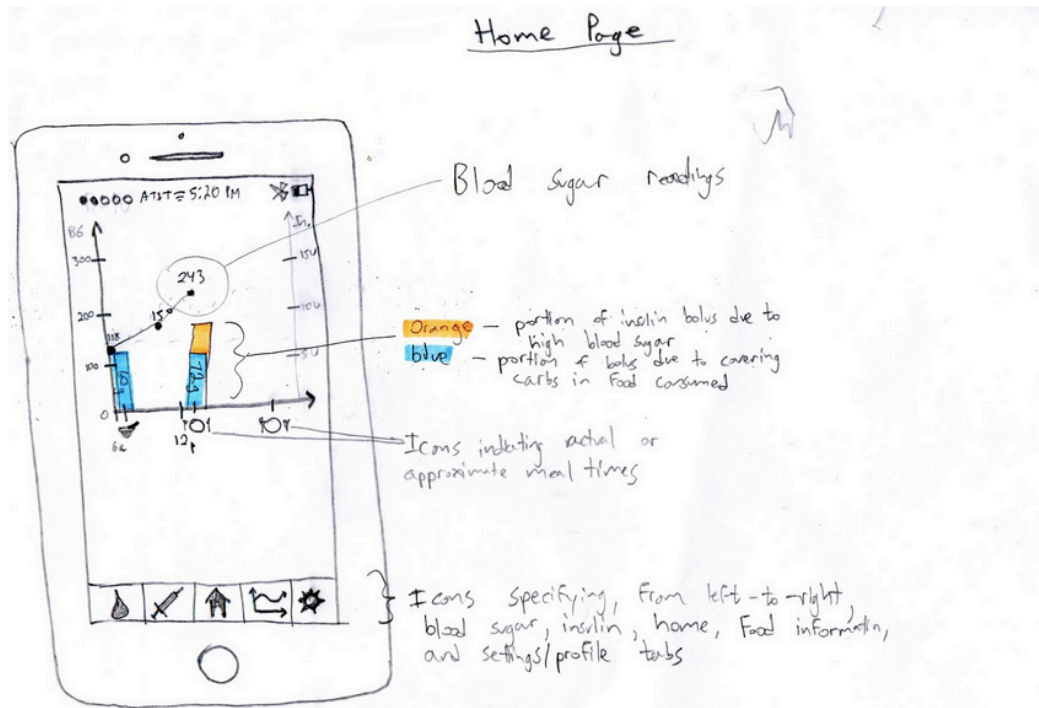 Home Page
Blood sugar readings
AT&T 5:20 PM
BG
In.
300
200
100
0
15u
10u
5u
243
118
72g
6a
12p
Orange — portion of insulin bolus due to
high blood sugar
blue — portion of bolus due to covering
carbs in food consumed
Icons indicating actual or
approximate meal times
Icons specifying, from left-to-right,
blood sugar, insulin, home, Food information,
and settings/profile tabs